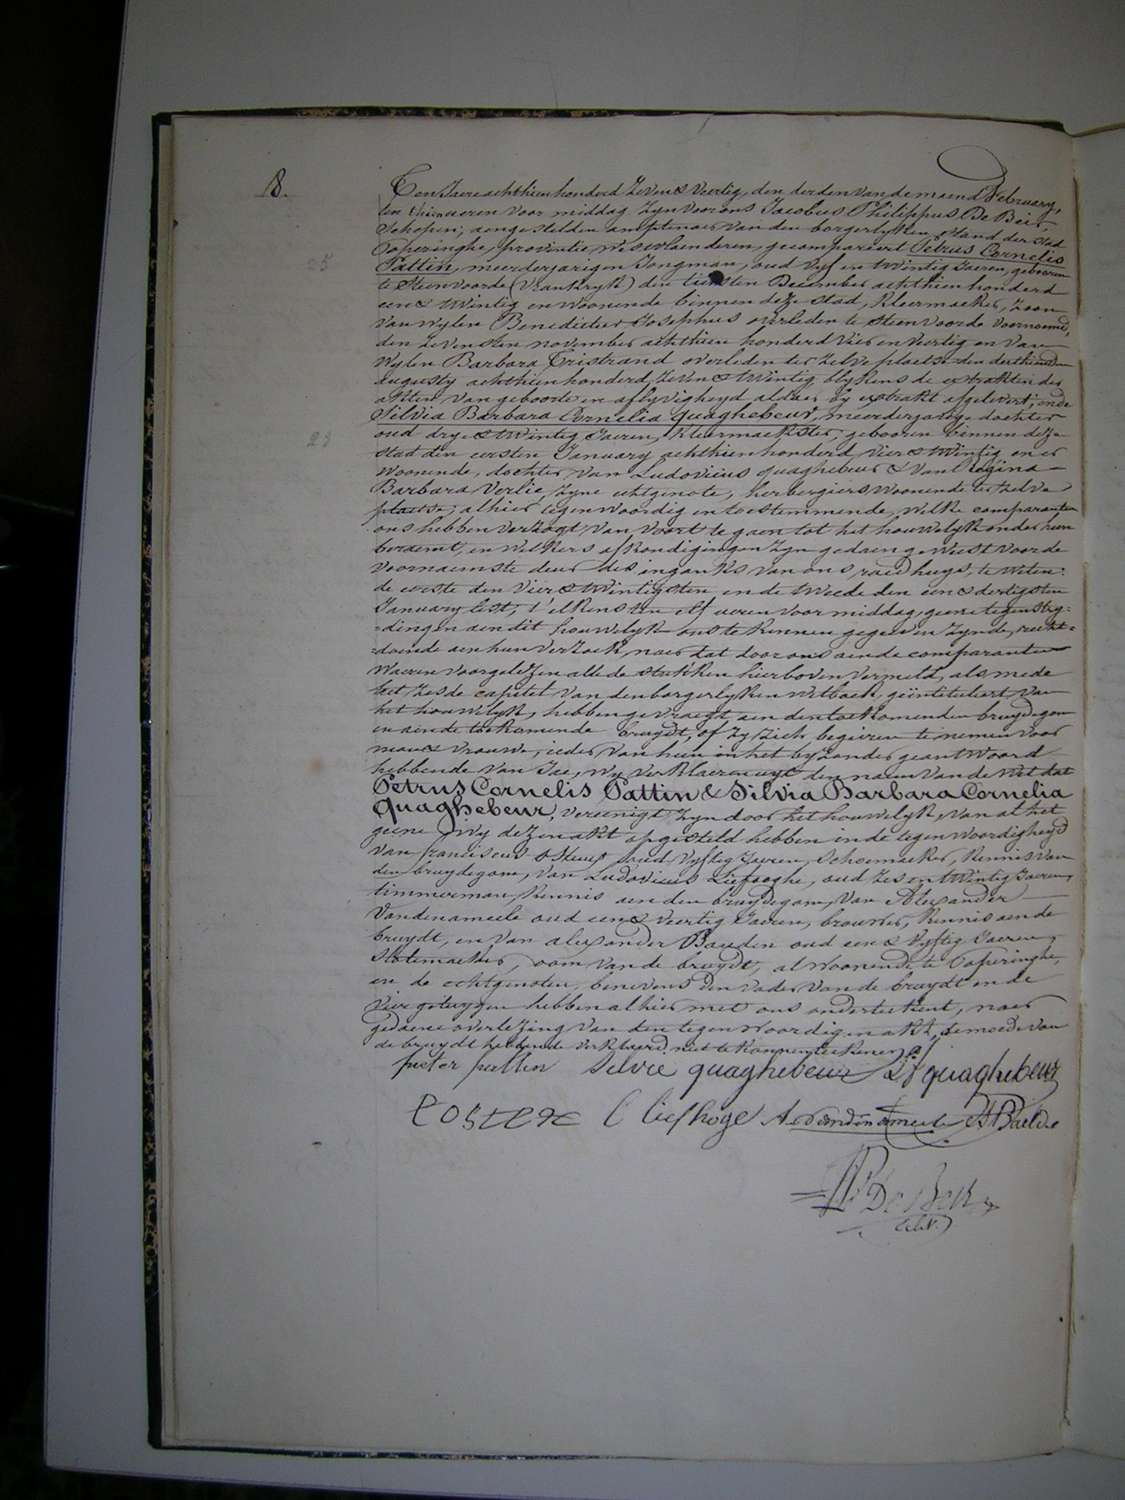 8.
Ten Jaere achthien honderd Zeven & Veertig, den derden van de maend February,
ten thien ueren voor middag Zyn voor ons Jacobus Philippus De Beir,
Schepen, aengestelden amptenaer van den borgerlyken stand der stad
Poperinghe, provintie Westvlaenderen, gecompareert Petrus Cornelis
25
Pattin, meerderjarigen Jongman, oud Vyf en twintig Jaeren, gebooren
te Steenvoorde (Vrankryk) den tiensten December achthien honderd
een & twintig en woonende binnen deze stad, Kleermaeker, Zoon
van wylen Benedictus Josephus overleden te Steenvoorde voornoemd,
den Zevensten november achthien honderd Vier en Veertig en van
wylen Barbara Tristrand overleden ter Zelve plaetse den derthienden
augusty achthien honderd Zeven & twintig blykens de extrakten der
akten van geboorte en aflyvigheyd aldaer by extrakt afgelevert; ende
Silvia Barbara Cornelia Quaghebeur, meerderjarige dochter
23
oud drye & twintig Jaeren, Kleermaekster, gebooren binnen deze
stad den eersten January achthien honderd Vier & twintig en er
woonende, dochter van Ludovicus Quaghebeur & van Regina
Barbara Verlie, Zyne echtgenote, herbergiers woonende ter Zelve
plaetse, alhier tegenwoordig en toestemmende, welke comparanten
ons hebben verzogt van voort te gaen tot het houwelyk onder hun
beraemt, en welkers afkondigingen Zyn gedaen geweest voor de
voornaemste deur des ingangs van ons raedhuys, te weten:
de eerste den Vier & twintigsten en de tweede den een & dertigsten
January lest, t'elkens ten elf ueren voor middag, geene tegenstry-
-dingen aen dit houwelyk ons te kennen gegeven Zynde, recht-
-doende aen hun verzoek, naer dat door ons aen de comparanten
waeren voorgelezen alle de stukken hierboven vermeld, als mede
het Zesde capitel van den borgerlyken wetboek, geïntituleert van
het houwelyk, hebben gevraegt aen den toekomenden bruydegom
en aen de toekomende bruydt, of Zy Zich begeeren te nemen voor
man & vrouwe, ieder van hun in het byzonder geantwoord
hebbende van Jae, wy verklaeren uyt den naem van de wet dat
Petrus Cornelis Pattin & Silvia Barbara Cornelia
Quaghebeur, vereenigt Zyn door het houwelyk, van al het
geene wy dezen akt opgesteld hebben in de tegenwoordigheyd
van franciscus Osteux oud Vyftig Jaeren, Schoemaeker, Kennis van
den bruydegom, van Ludovicus Liefooghe, oud Zes en twintig Jaeren,
timmerman, Kennis aen den bruydegom, van Alexander
Vandenameele oud een & Veertig Jaeren, brouwer, Kennis aen de
bruydt, en van alexander Baeden oud een & Vyftig Jaeren,
Slotemaeker, oom van de bruydt, al woonende te Poperinghe,
en de echtgenoten, benevens den vader van de bruydt en de
Vier getuygen hebben alhier met ons onderteekent, naer
gedaene overlezing van den tegenwoordigen akt, de moeder van
de bruydt hebbende verklaerd niet te konnen teekenen.
pieter pattin Silvie quaghebeur L f quaghebeur
l liefhoge A Vandenameele A Baelde
De Beir